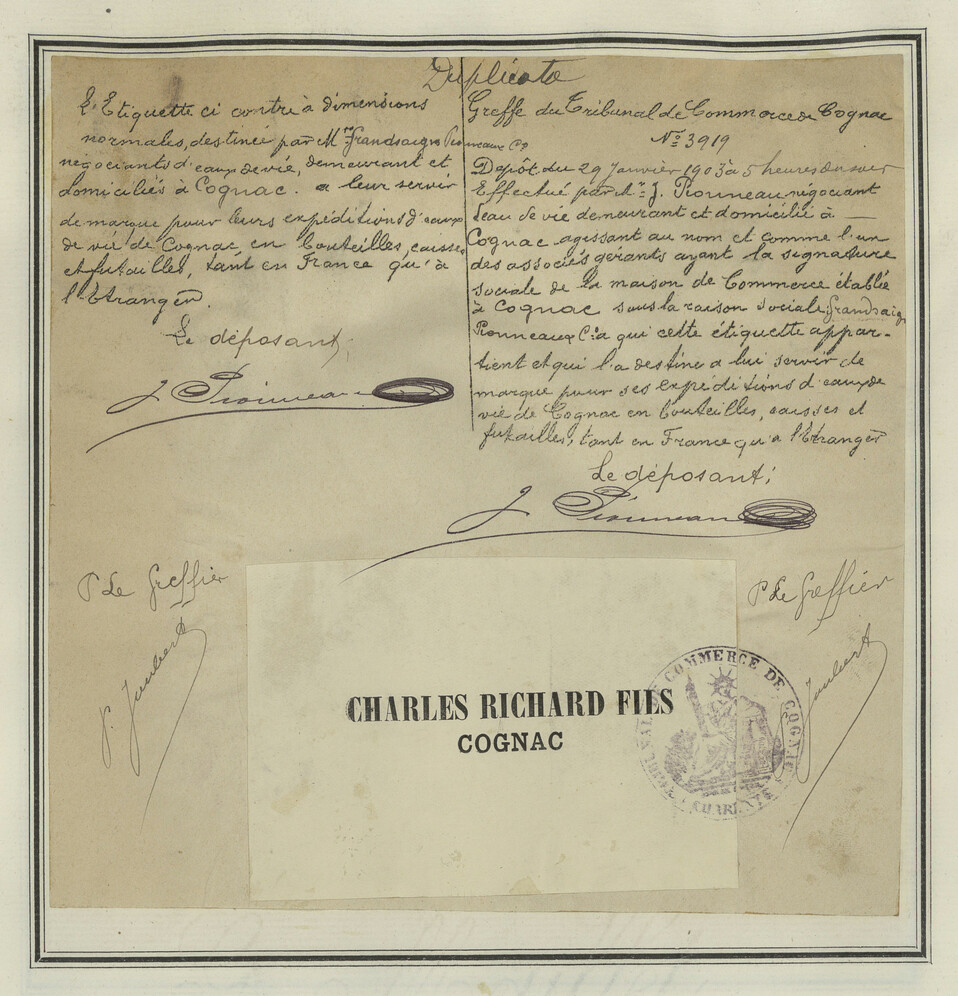 Duplicata
L'Etiquette ci contre à dimensions
normales, destinée par Mrs Grandsaigne Pionneaux Co
négociants d'eaux de vie, demeurant et
domiciliés à Cognac. a leur servir
de marque pour leurs expéditions d'eaux
de vie de Cognac en bouteilles, caisses
et futailles, tant en France qu'à
l'Etranger.
Le déposant,
J Pionneau
Greffe du Tribunal de Commerce de Cognac
No 3919
Depôt du 29 Janvier 1903 à 5 heures du soir
Effectué par Mr J. Pionneau négociant
d'eau de vie demeurant et domicilié à
Cognac agissant au nom et comme l'un
des associés gerants ayant la signature
sociale de la maison de Commerce établie
à Cognac sous la raison sociale Grandsaig
Pionneaux Co a qui cette étiquette appar-
tient et qui l'a destine a lui servir de
marque pour ses expéditions d'eaux de
vie de Cognac en bouteilles, caisses et
futailles, tant en France qu'a l'Etranger
Le déposant;
J Pionneau
P Le Greffier
P. Joubert
P Le Greffier
Joubert
CHARLES RICHARD FILS
COGNAC
TRIBUNAL DE COMMERCE DE COGNAC
CHARENTE